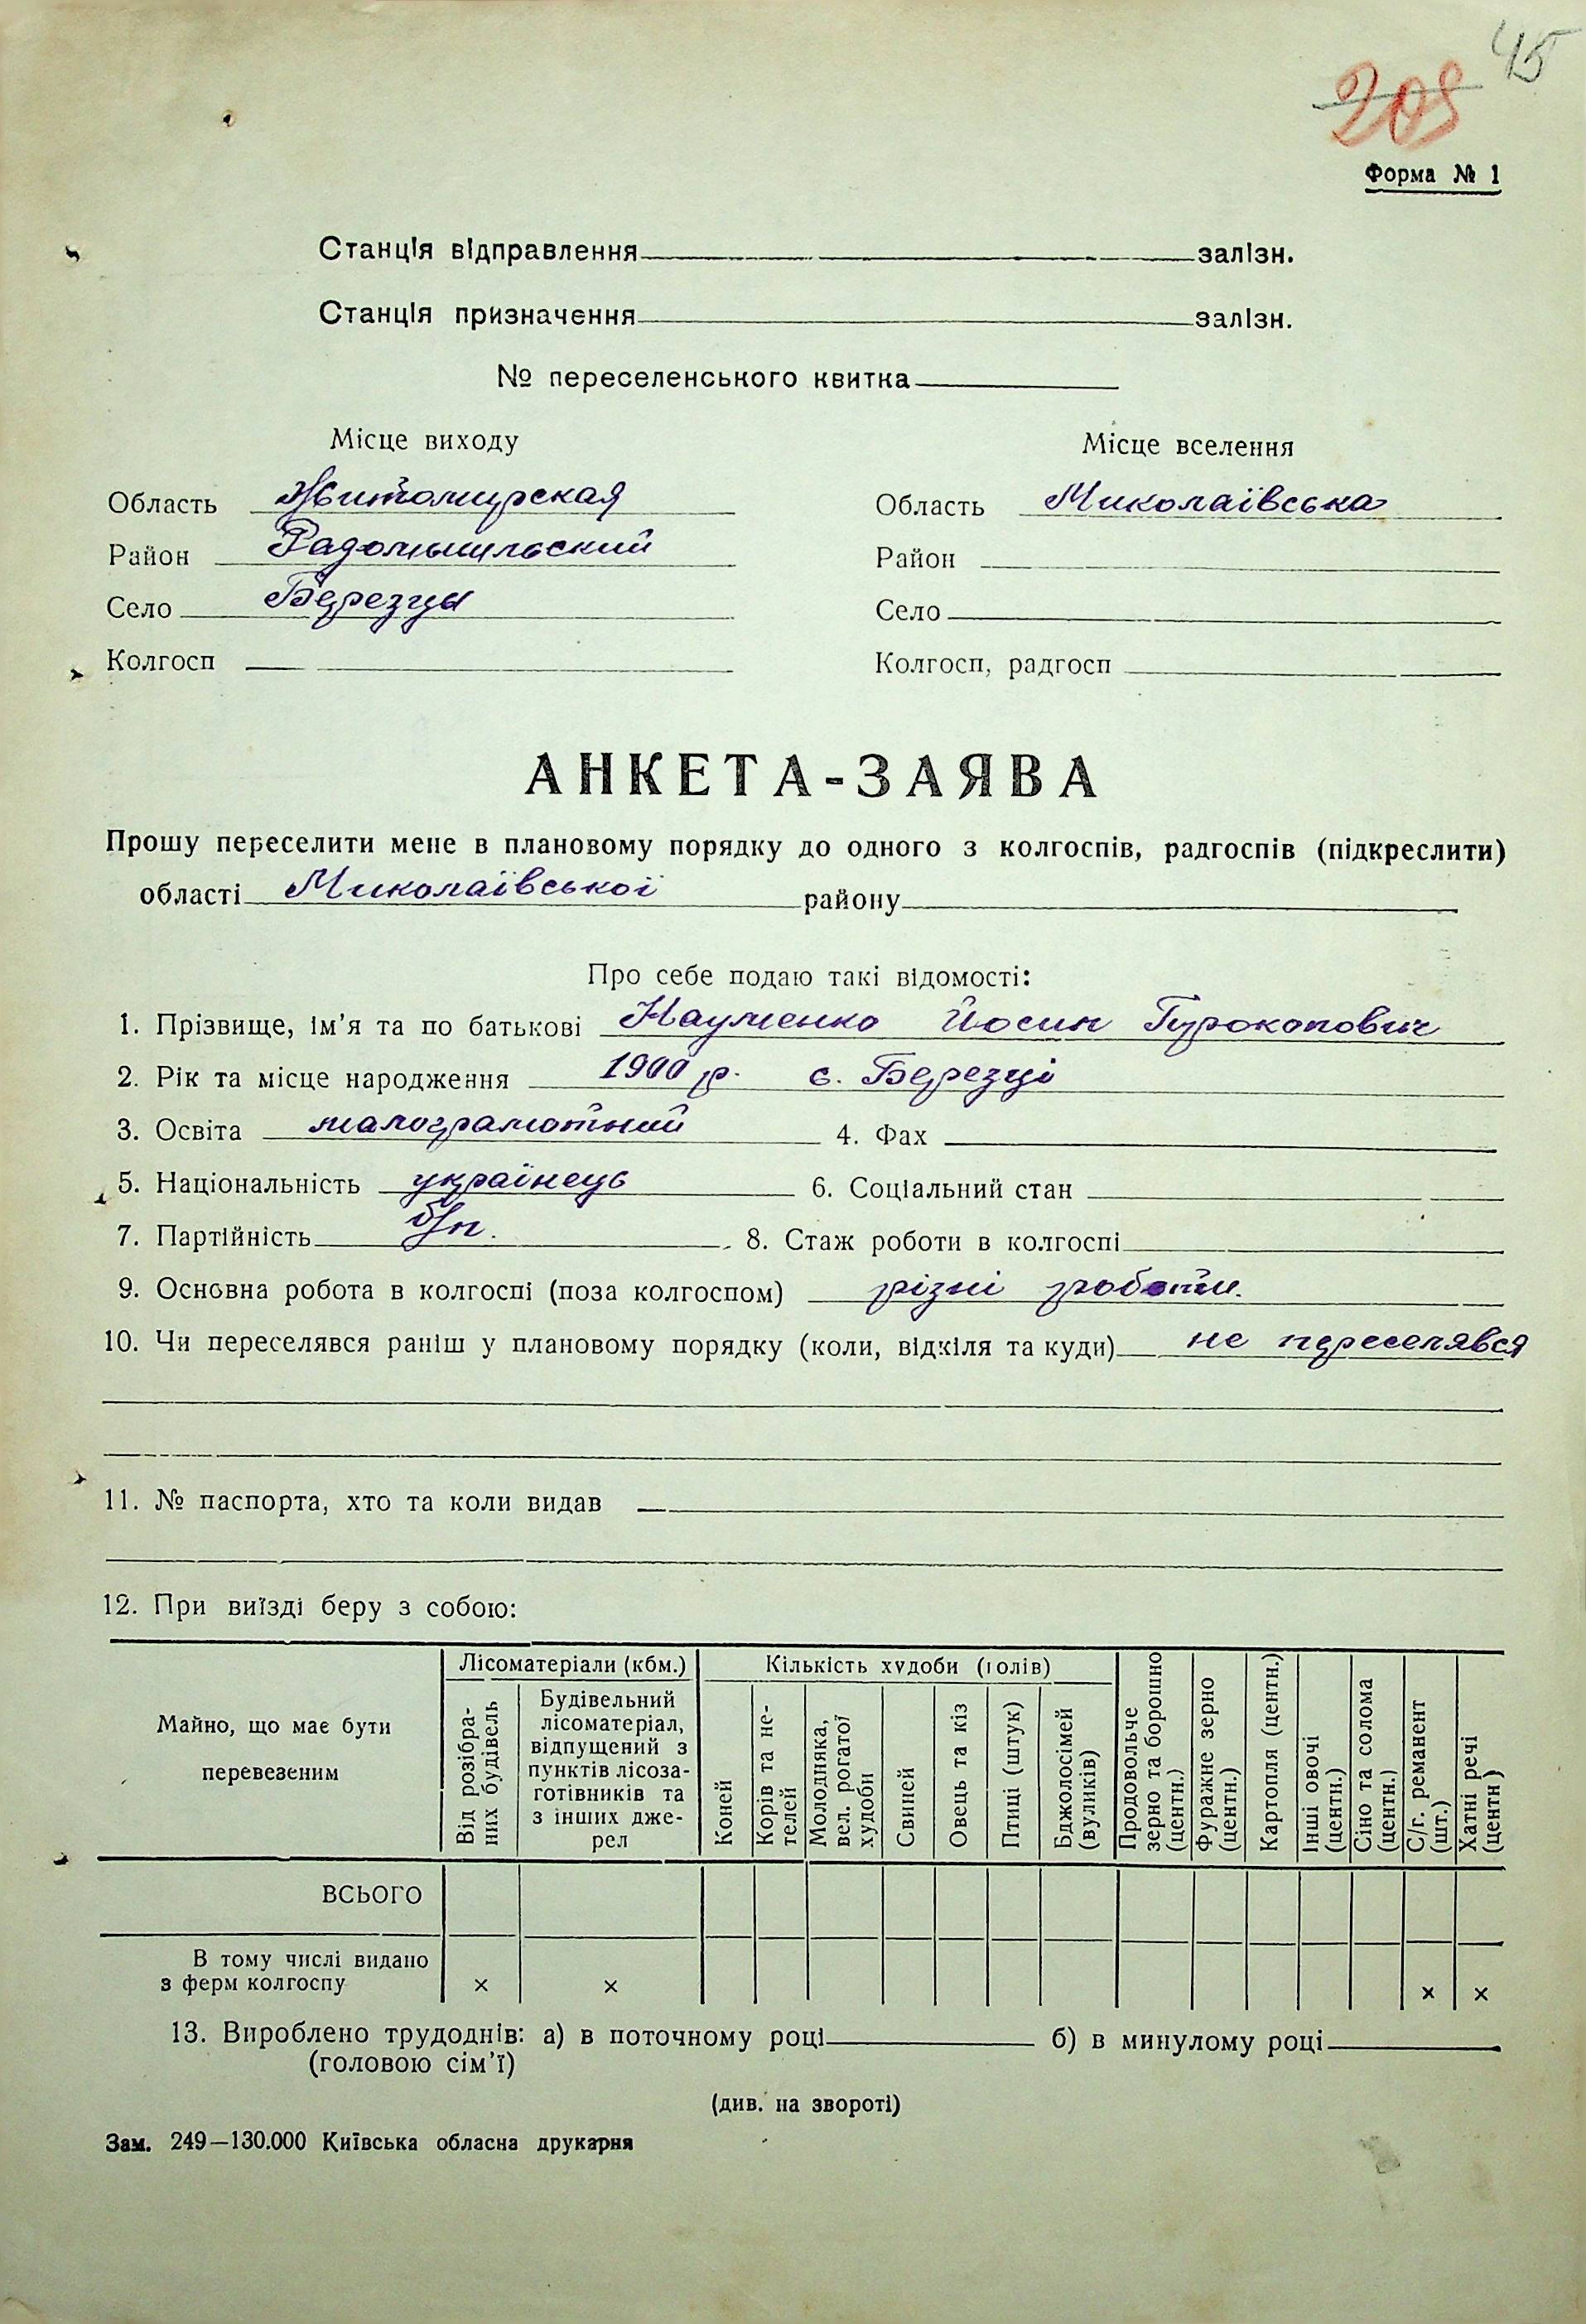 45
209
Форма № 1
Станція відправлення залізн.
Станція призначення залізн.
№ переселенського квитка
Місце виходу Місце вселення
Область Житомирская Область Миколаївська
Район Радомышльский Район
Село Березцы Село
Колгосп Колгосп, радгосп
АНКЕТА-ЗАЯВА
Прошу переселити мене в плановому порядку до одного з колгоспів, радгоспів (підкреслити)
області Миколаївської району
Про себе подаю такі відомості:
1. Прізвище, ім'я та по батькові Науменко Йосип Прокопович
2. Рік та місце народження 1900 р. с. Березці
3. Освіта малограмотний 4. Фах
5. Національність українець 6. Соціальний стан
7. Партійність б/п. 8. Стаж роботи в колгоспі
9. Основна робота в колгоспі (поза колгоспом) різні роботи.
10. Чи переселявся раніш у плановому порядку (коли, відкіля та куди) не переселявся
11. № паспорта, хто та коли видав
12. При виїзді беру з собою:
Майно, що має бути перевезеним
Лісоматеріали (кбм.)
Від розібраних будівель
Будівельний
лісоматеріал,
відпущений з
пунктів лісоза-
готівників та
з інших дже-
рел
Кількість худоби (голів)
Коней
Корів та не-
телей
Молодняка,
вел. рогатої
худоби
Свиней
Овець та кіз
Птиці (штук)
Бджолосімей
(вуликів)
Продовольче
зерно та борошно
(центн.)
Фуражне зерно
(центн.)
Картопля (центн.)
Інші овочі
(центн.)
Сіно та солома
(центн.)
С/г. реманент
(шт.)
Хатні речі
(центн)
ВСЬОГО
В тому числі видано
з ферм колгоспу × × × ×
13. Вироблено трудоднів: а) в поточному році б) в минулому році
(головою сім'ї)
(див. на звороті)
Зам. 249—130.000 Київська обласна друкарня